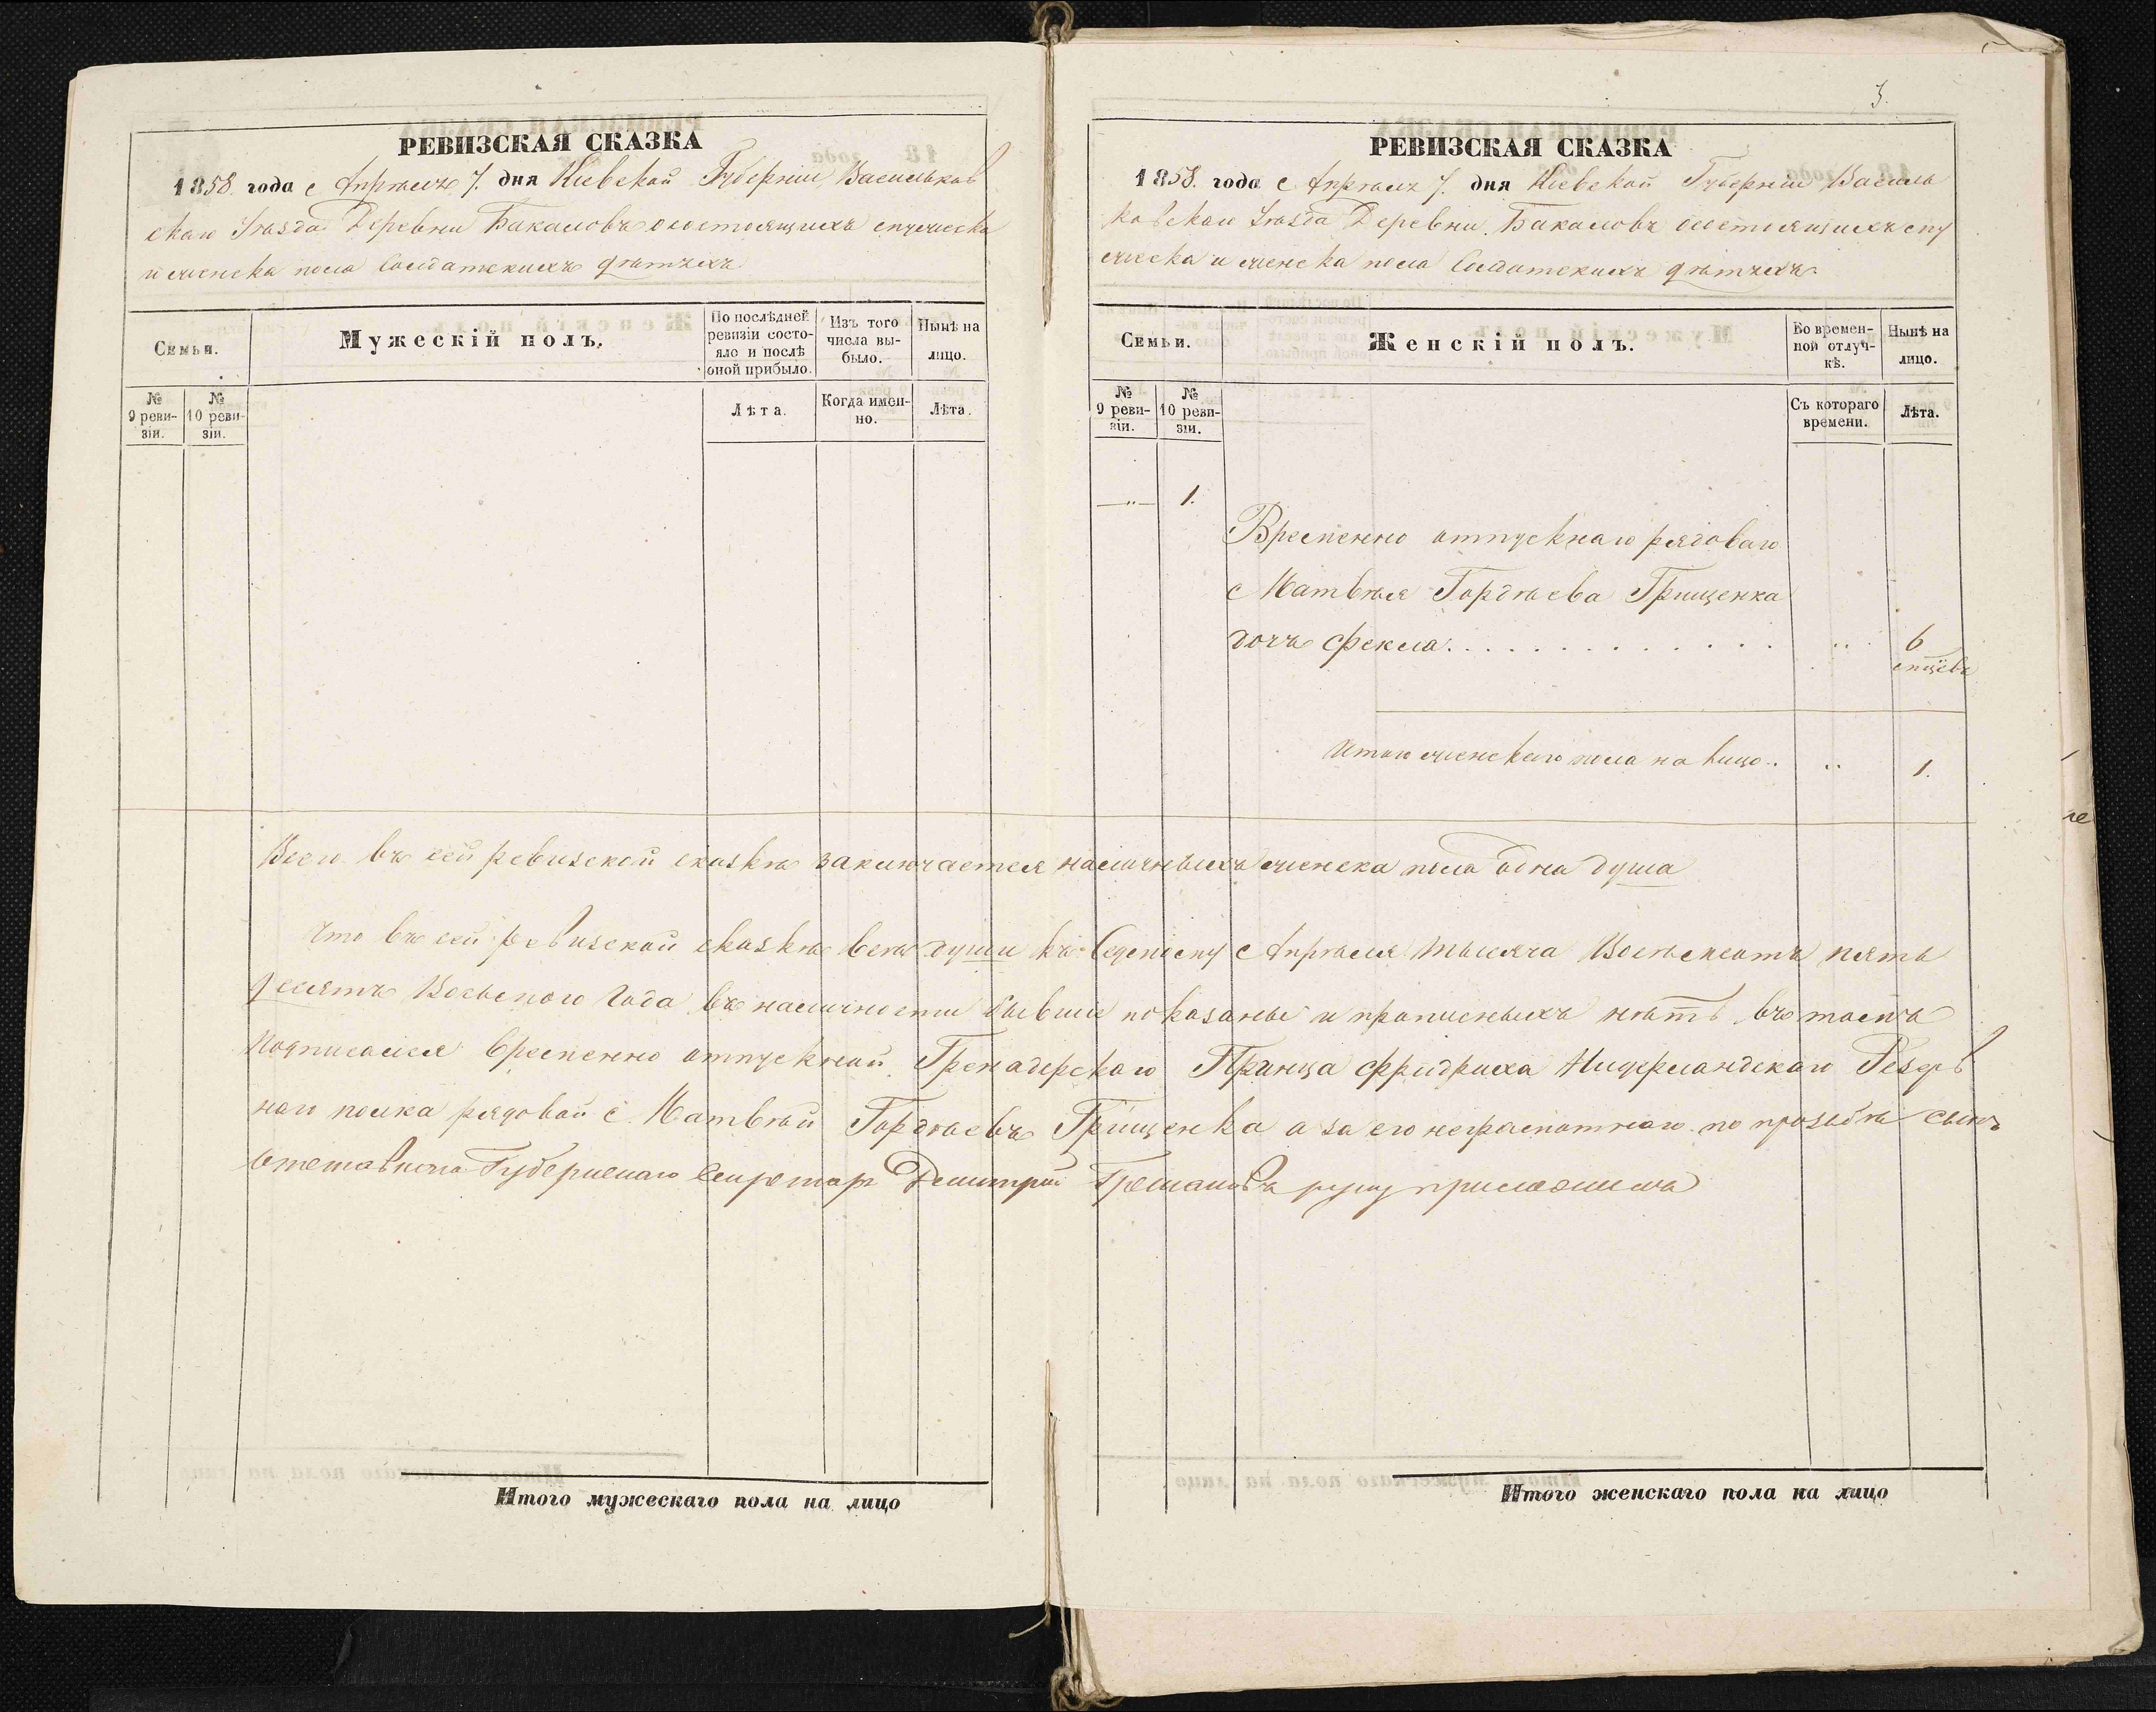 РЕВИЗСКАЯ СКАЗКА
1858. года Апрѣля 7. дня Кіевской Губерніи, Васильков
скаго Уѣзда Деревни Бакаловъ о состоящихъ
и женска пола Солдатскихъ дѣтяхъ
Семьи.
Мужескій полъ.
По послѣдней ревизіи состо-яло и послѣ оной прибыло.
Изъ того числа вы-было.
Нынѣ на лицо.
№ 9 реви-зіи.
№ 10 реви-зіи.
Лѣта.
Когда имен-но.
Лѣта.
Итого мужескаго пола на лицо
3.
РЕВИЗСКАЯ СКАЗКА
1858. года Апрѣля 7. дня Кіевской Губерніи Василь
ковскаго Уѣзда Деревни Бакаловъ о состоящихъ му
жеска и женска пола Солдатскихъ дѣтяхъ.
Семьи.
Женскій полъ.
Во времен-ной отлуч-кѣ.
Нынѣ на лицо.
№ 9 реви-зіи.
№ 10 реви-зіи.
Съ котораго времени.
Лѣта.
1.
Временно отпускнаго рядоваго
Матвѣя Гордѣева Грищенка
дочь Фекла . . . . . . . . . . . . . 6
мѣсяцевъ
Итого женскаго пола на лицо. 1.
Всего въ сей ревизской сказкѣ заключается наличныхъ женска пола одна душа
Что въ сей ревизской сказкѣ всѣ души къ Седьмому Апрѣля тысяча Восемсотъ пять
десятъ Восьмого Года въ наличности бывшіе показаны и прописныхъ нѣтъ въ томъ
Подписался временно отпускной Гренадерскаго Принца Фридриха Нидерландскаго Резерв
наго полка рядовой Матвѣй Гордѣевъ Грищенка а за его неграмотнаго по прозьбѣ сынъ
Губернскаго Секретаря Дмитрій руку приложилъ
Итого женскаго пола на лицо